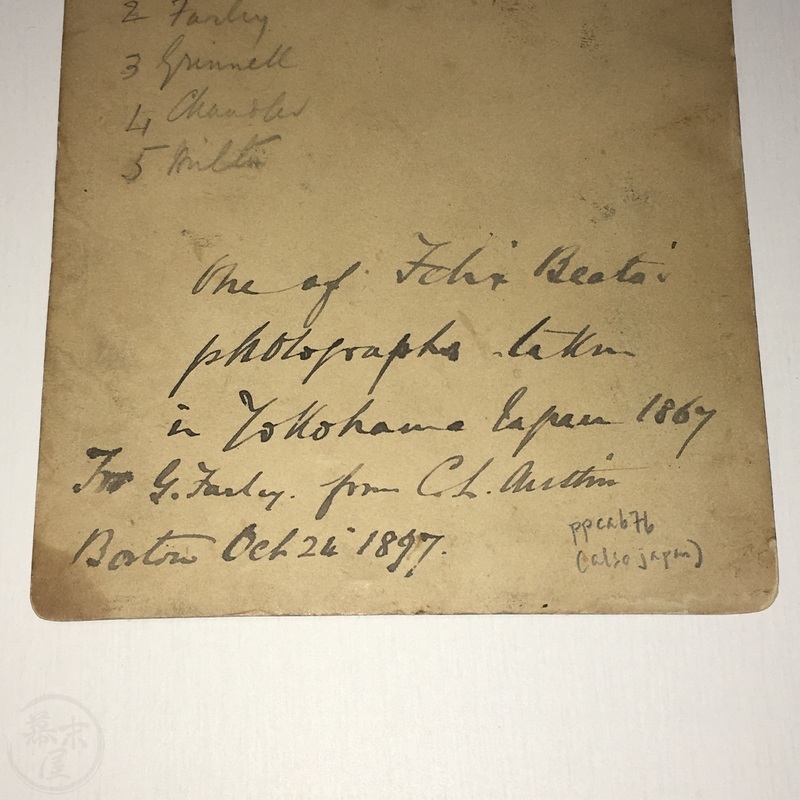 2 Farley
3 Grinnell
4 Chandler
5
One of Felix Beato's
photographs taken
in Yokohama Japan 1867
To G. Farley. from C. L. Austin
Boston Oct 24 1897.
ppcab76
(also japan)
幕末
屋